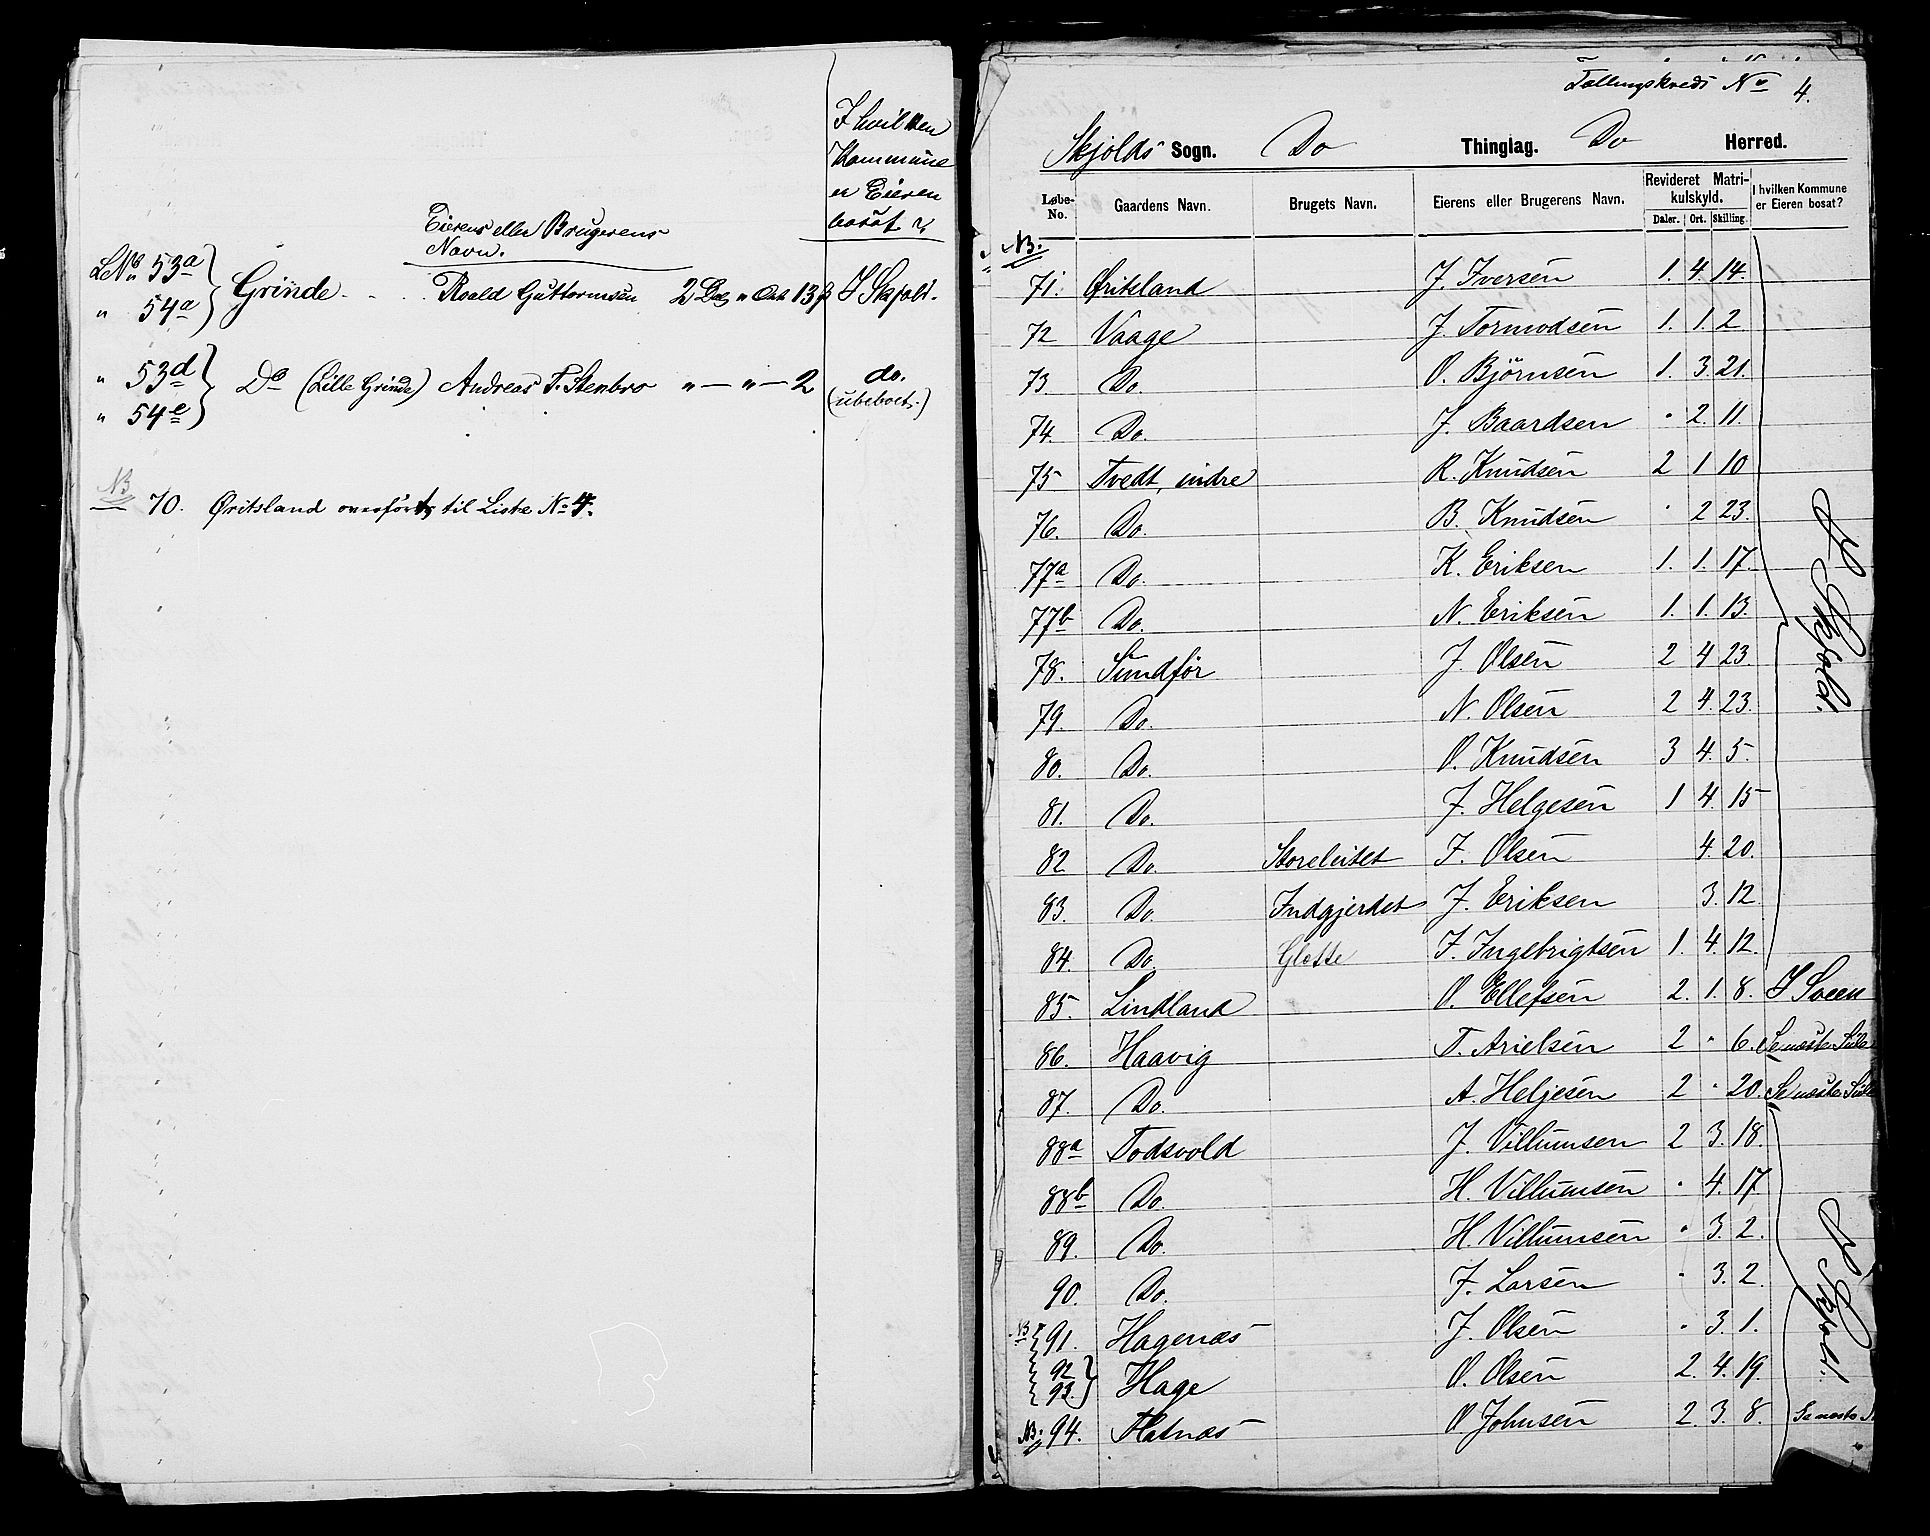 I hvilken
Kommune
er Eieren
bosat?
Eierens eller Brugerens
Navn.
L.No 53a
" 54a } Grinde - - Roald Guttormsen 2 Dal " Ort 13 ß I Skjold.
" 53d
" 54e } Do (Lille Grinde) Andreas T. Stenbro " — " — 2 do. (ubeboet.)
NB 70. Øritsland overføres til Liste No 4.
Tællingskreds No 4.
Skjolds Sogn. Do Thinglag. Do Herred.
Løbe-No. Gaardens Navn. Brugets Navn. Eierens eller Brugerens Navn. Revideret Matrikulskyld. I hvilken Kommune er Eieren bosat?
Daler. Ort. Skilling.
NB.
71. Øritsland J. Iversen 1. 4. 14.
72 Vaage J. Tormodsen 1. 1. 2
73. Do. O. Bjørnsen 1. 3. 21.
74. Do. J. Baardsen " 2. 11.
75 Tvedt, indre R. Knudsen 2 1 10
76. Do. B. Knudsen " 2 23.
77a Do. K. Eriksen 1. 1. 17.
77b Do. N. Eriksen 1. 1. 13.
I Skjold.
78. Sundfør J. Olsen 2 4 23.
79. Do. N. Olsen 2 4. 23.
80. Do. O. Knudsen 3 4. 5.
81. Do. J. Helgesen 1 4. 15
82 Do. Storeleitet J. Olsen 4. 20.
83. Do. Indgjerdet J. Eriksen 3. 12
84. Do. Glette J. Ingebrigtsen 1. 4. 12.
85. Lindland O. Ellefsen 2. 1. 8. I Sveen
86. Haavig T. Arielsen 2 " 6. Se næste Side
87. Do. A. Heljesen 2 " 20. Se næste Side
88a Todsvold J. Villumsen 2 3. 18.
88b Do. H. Villumsen " 4. 17
89. Do. H. Villumsen " 3. 2.
90. Do. J. Larsen " 3. 2.
I Skjold.
NB 91. Hagenæs J. Olsen " 3. 1.
92
93. } Hage O. Olsen 2. 4. 19.
NB. 94. Flatnæs O Johnsen 2. 3. 8. Se næste